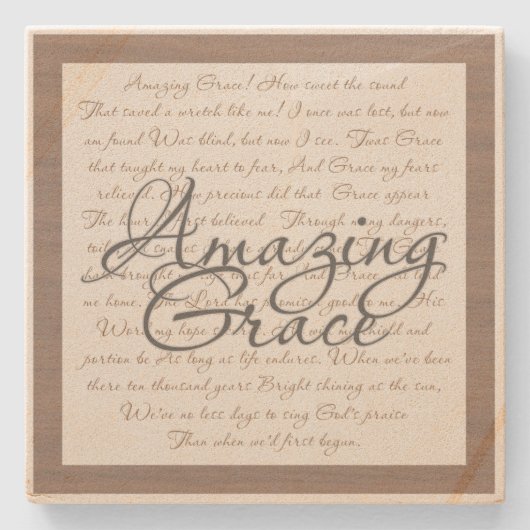 Amazing Grace! How sweet the sound
That saved a wretch like me! I once was lost, but now
am found Was blind, but now I see. Twas Grace
that taught my heart to fear, And Grace my fears
relieved. How precious did that Grace appear
The hour first believed Through many dangers,
Amazing
Grace
hath brought thus far And Grace lead
me home. The Lord has promised good to me. His
Word my hope will my shield and
portion be As long as life endures. When we've been
there ten thousand years Bright shining as the sun,
We've no less days to sing God's praise
Than when we'd first begun.